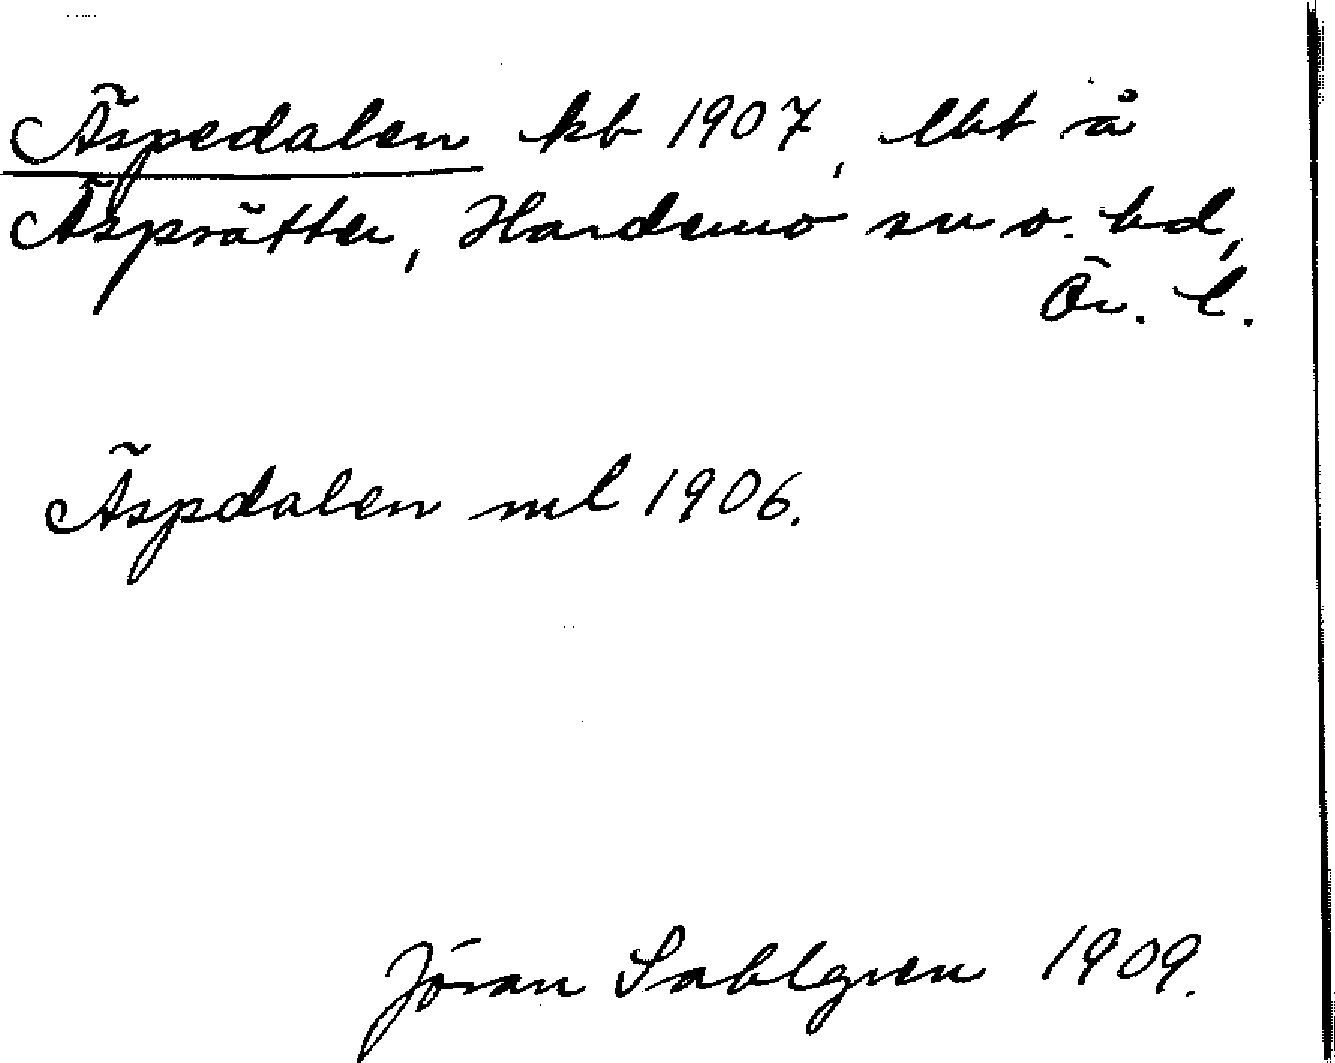 Äspedalen kb 1907, lbt å
Äsprätter, Hardemo sn o. hd,
Ör. l.
Äspdalen ml 1906.
Jöran Sahlgren 1909.